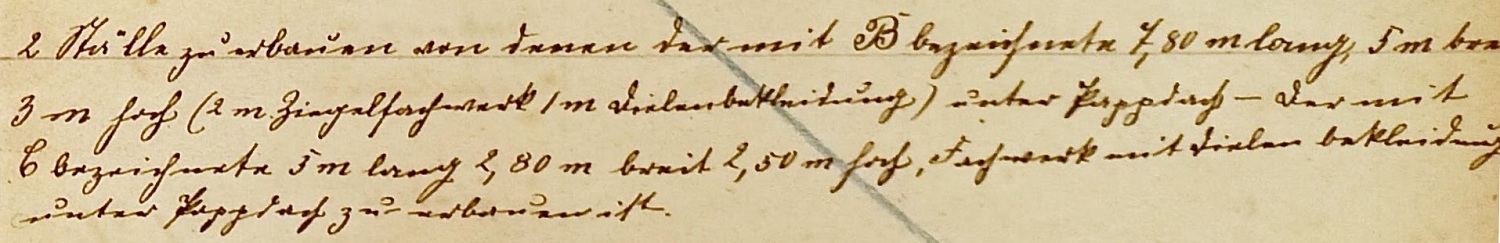 2 Ställe zu erbauen von denen der mit B bezeichnete 7,80 m lang, 5 m bre
3 m hoch (2 m Ziegelfachwerk 1 m Dielenbekleidung) unter Pappdach – der mit
C bezeichnete 5 m lang 2,80 m breit 2,50 m hoch, Fachwerk mit Dielen bekleidung
unter Pappdach zu erbauen ist.